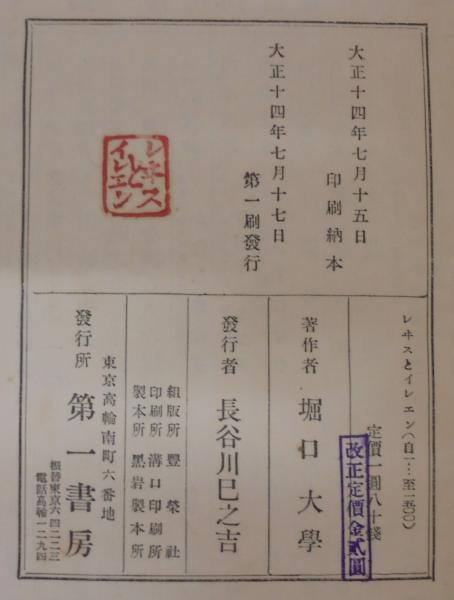 大正十四年七月十五日
印刷納本
大正十四年七月十七日
第一刷發行
レヰス
と
イレェン
レヰスとイレエン(自一…至一五〇〇)
定價一圓八十錢
改正定價金貳圓
著作者 堀口大學
發行者 長谷川巳之吉
組版所 豐榮社
印刷所 溝口印刷所
製本所 黒岩製本所
東京高輪南町六番地
發行所 第一書房
振替東京六四二二三
電話高輪一二九四